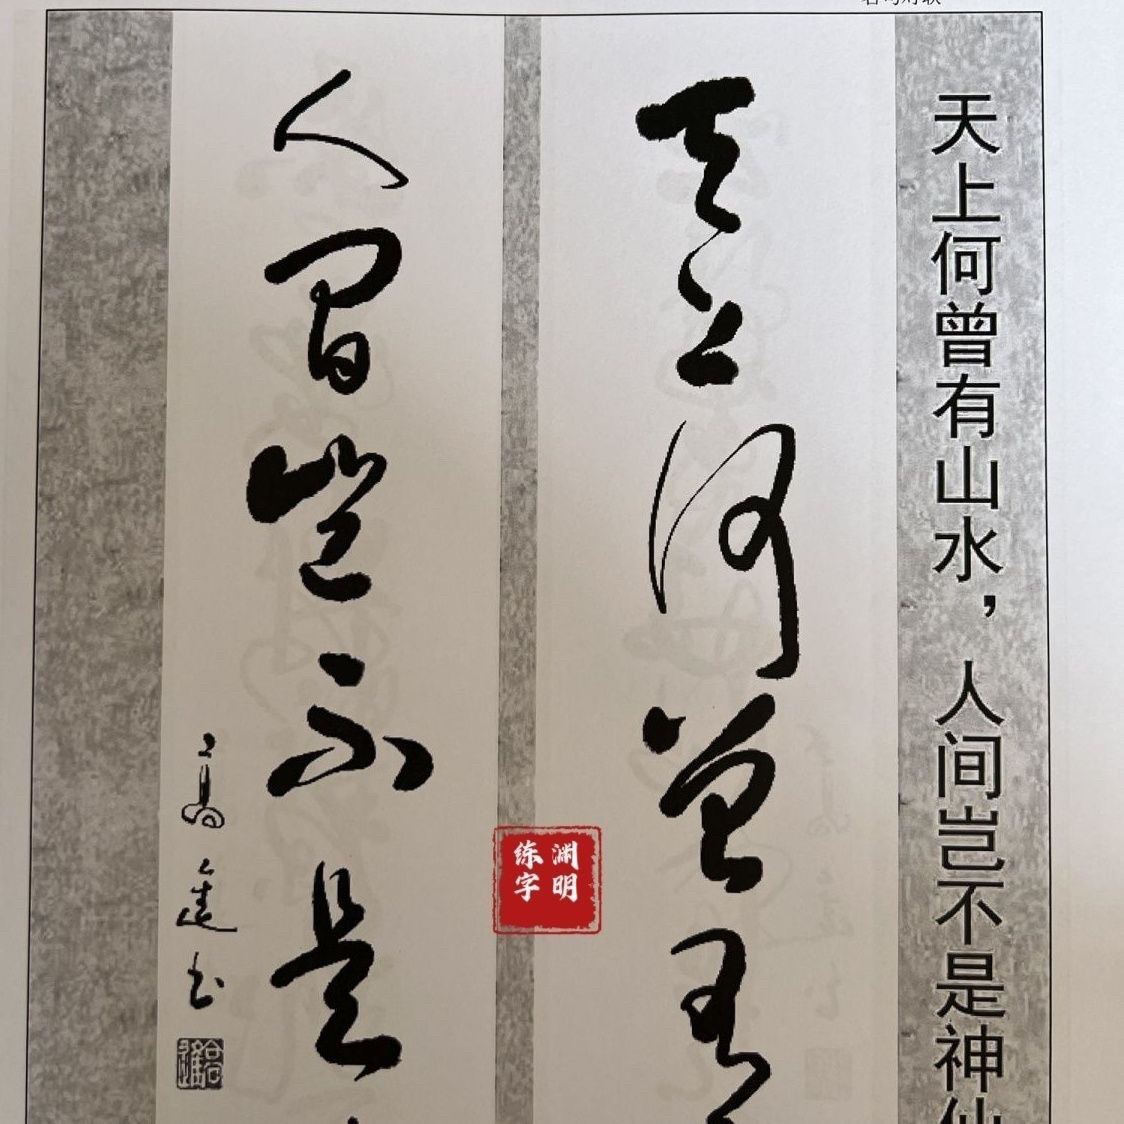 天上何曾有山水，人间岂不是神仙
天上何曾有
人间岂不是
高进书
渊明
练字